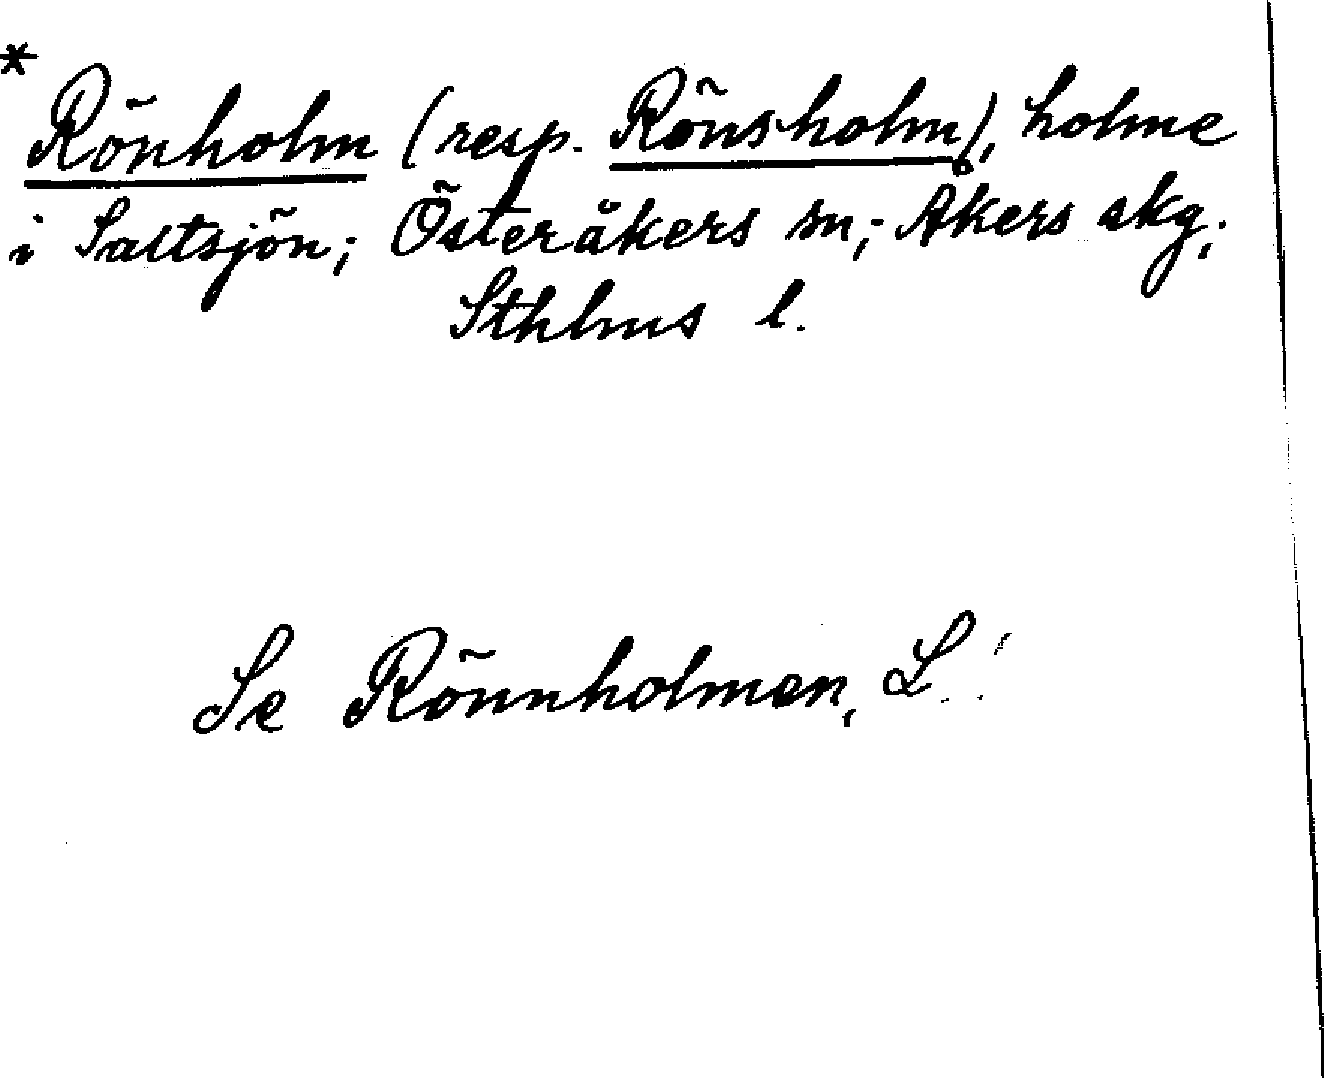 * Rönholm (resp. Rönsholm), holme
i Saltsjön; Österåkers sn; Åkers skg;
Sthlms l.
Se Rönnholmen, L.